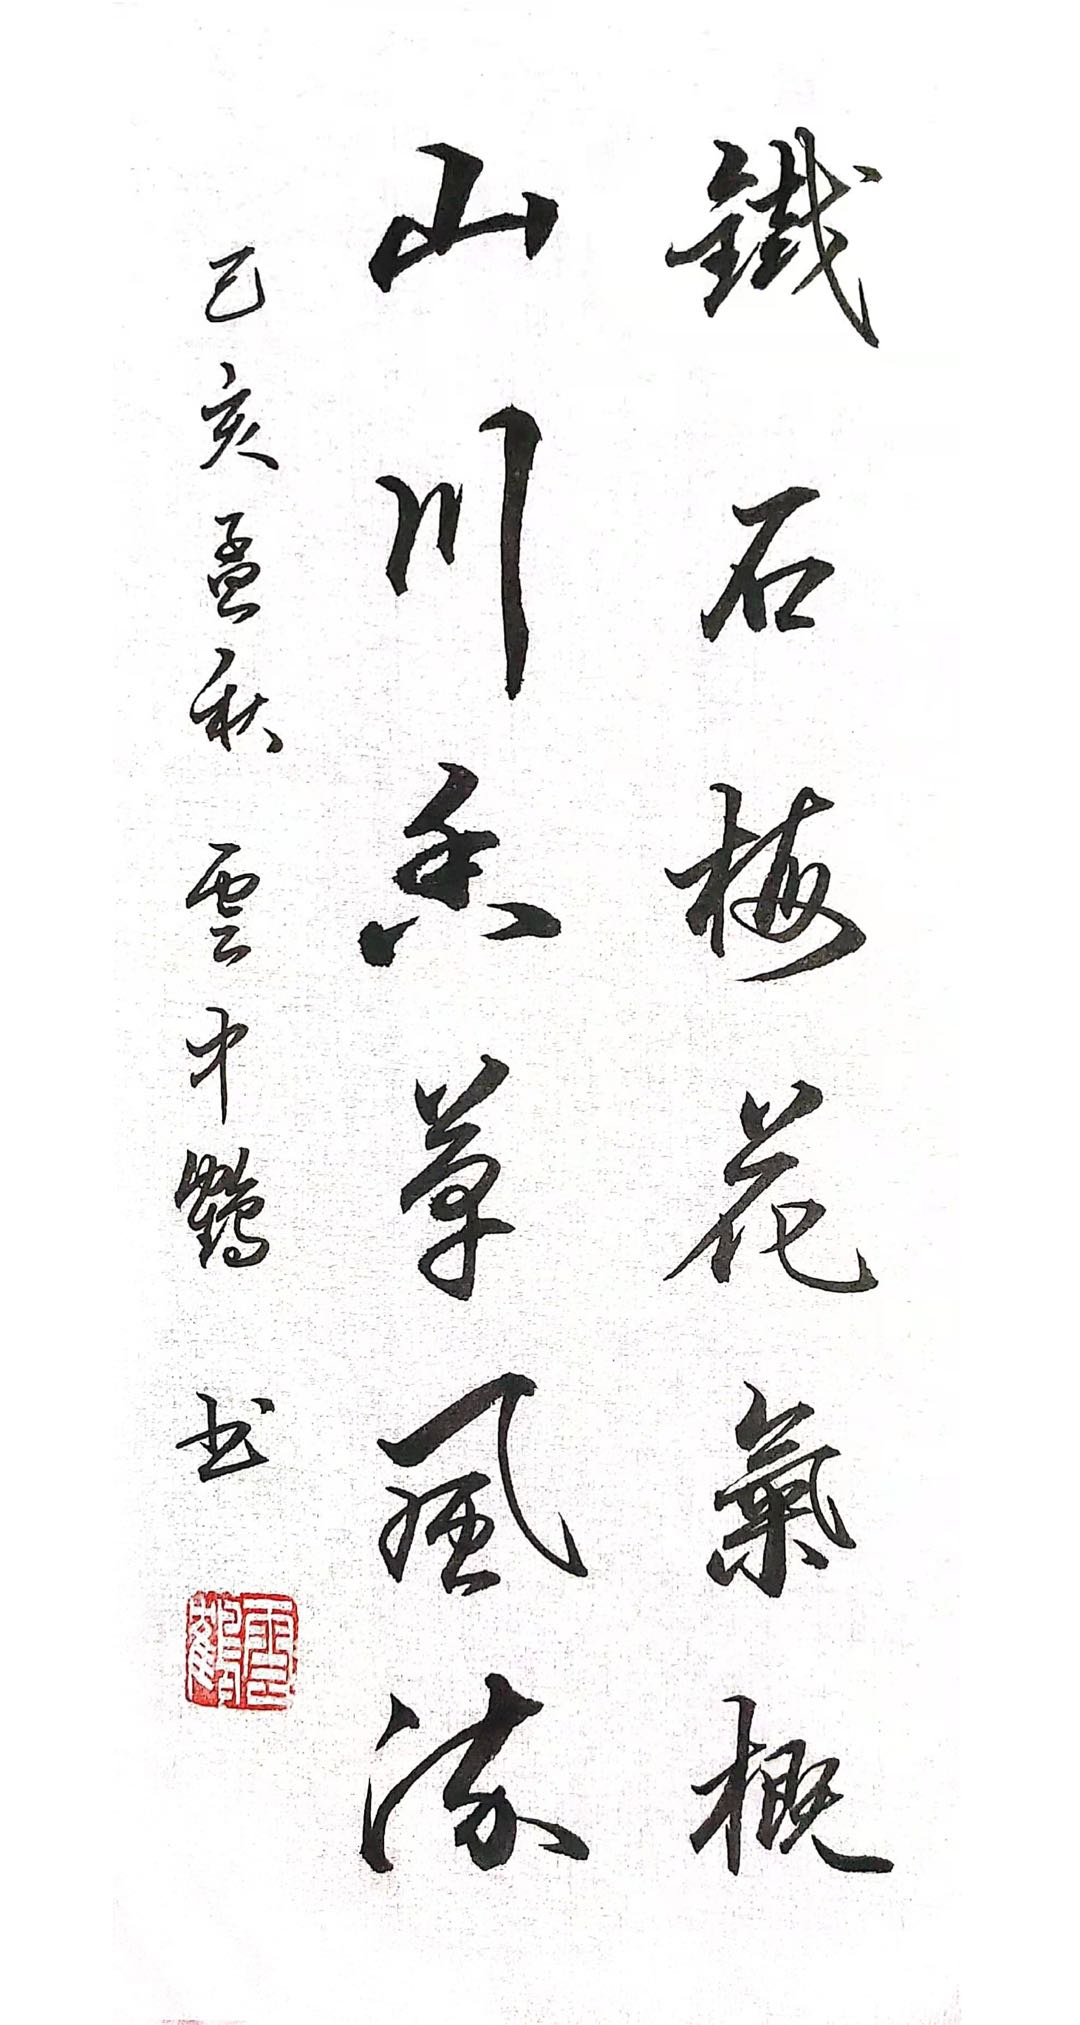 鐵石梅花氣概
山川香草風流
己亥孟秋 雲中鶴 书
雲鶴